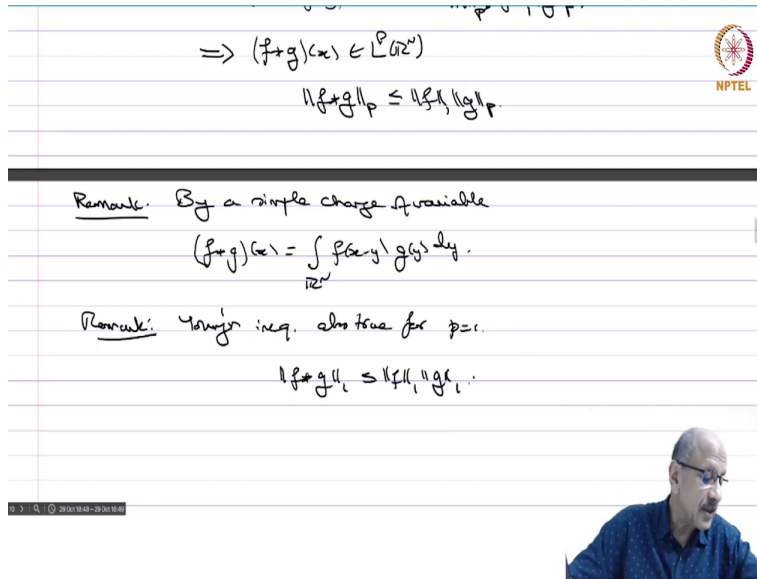 ⇒ (f*g)(x) ∈ L^p(ℝ^N)
NPTEL
‖f*g‖_p ≤ ‖f‖_1 ‖g‖_p.
Remark. By a simple change of variable
(f*g)(x) = ∫_{ℝ^N} f(x-y) g(y) dy.
Remark: Young's ineq. also true for p=1.
‖f*g‖_1 ≤ ‖f‖_1 ‖g‖_1.
29 Oct 18:48 – 29 Oct 18:49